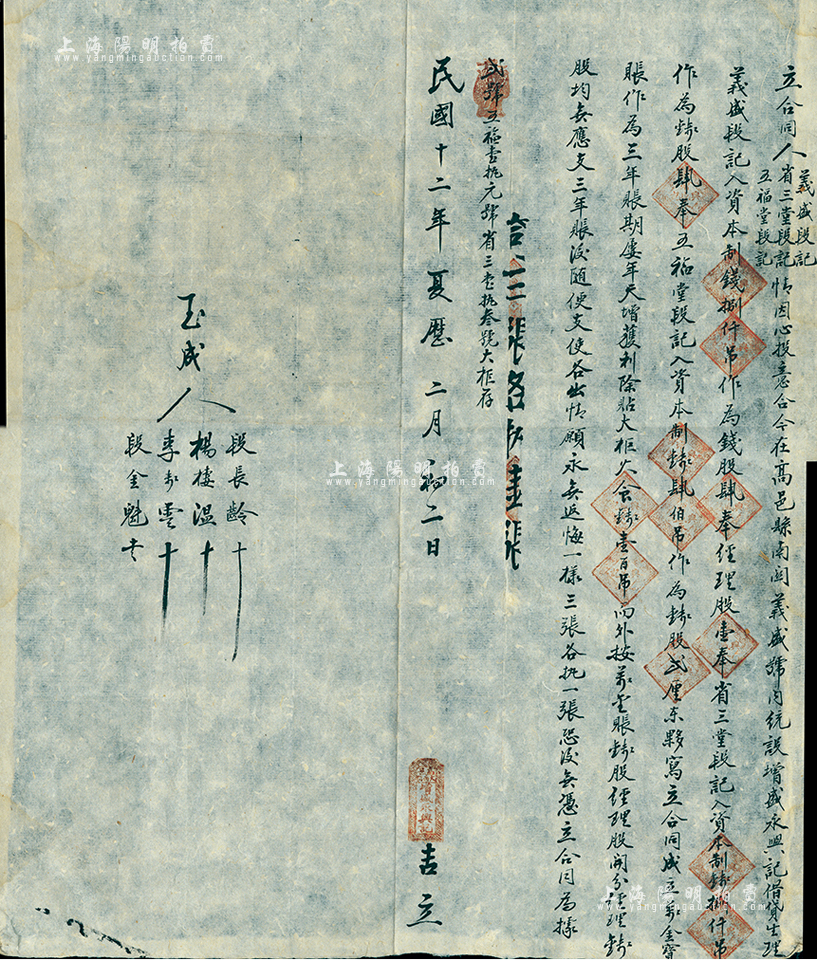 立合同人義盛段記省三堂段記五福堂段記情因心投意合今在高邑縣南関義盛號內統設增盛永興記借貸生理
義盛段記入資本制錢捌仟吊作為錢股肆奉經理股壹奉省三堂段記入資本制錢捌仟吊
作為錢股肆奉五福堂段記入資本制錢肆伯吊作為錢股弍厘東夥寫立合同成立萬金寶
賬作為三年賬期屡年天增獲利除貼大柜火食錢壹百吊而外按萬金賬錢股經理股開分經理錢
股均無應支三年賬後随便支使各出情願永無返悔一樣三張各执一張恐後無憑立合同為據
合同三張各执壹張
弍號五福堂执元號省三堂执叁號大柜存
民國十二年夏歷二月初二日
吉立
玉成人
段長齡十
楊樓温十
李雲十
段金魁
上海陽明拍賣
www.yangmingauction.com
上海陽明拍賣
www.yangmingauction.com
上海陽明拍賣
www.yangmingauction.com